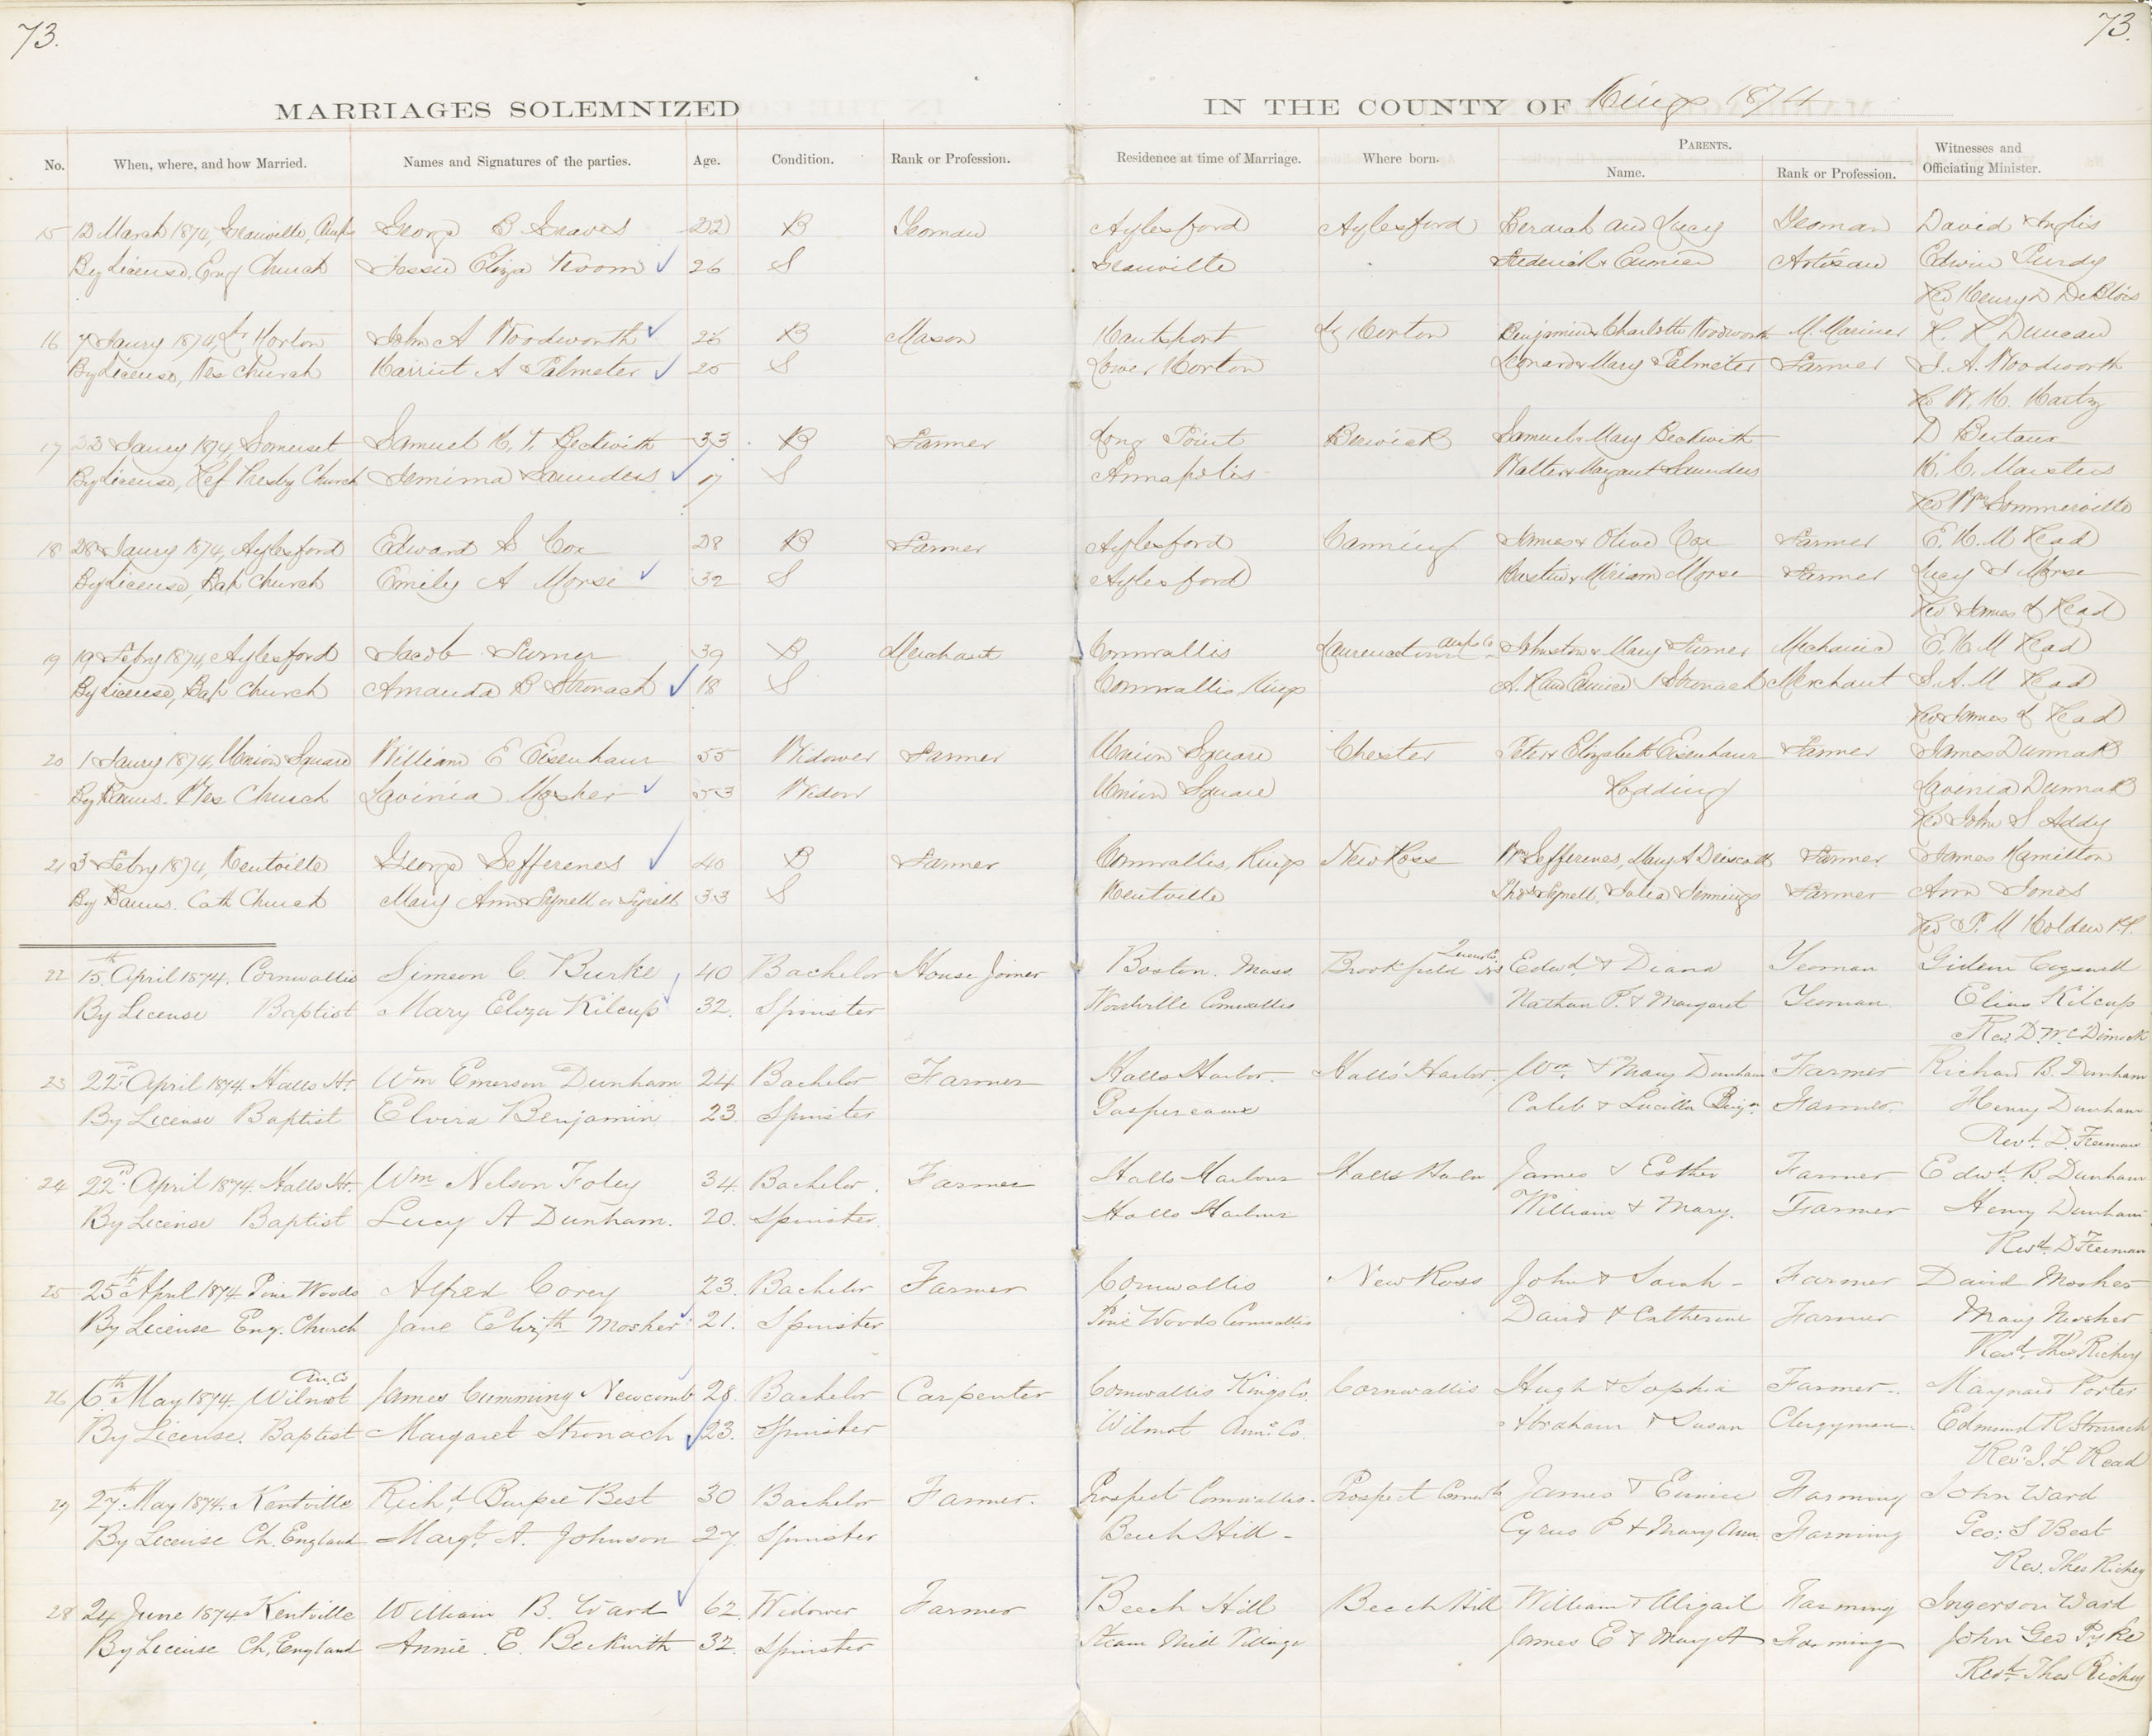 73.
73.
MARRIAGES SOLEMNIZED IN THE COUNTY OF Kings 1874
No. When, where, and how Married. Names and Signatures of the parties. Age. Condition. Rank or Profession. Residence at time of Marriage. Where born. PARENTS. Name. Rank or Profession. Witnesses and Officiating Minister.
15 12 March 1874, Granville, George B Graves 22 B Yeoman Aylesford Aylesford and Lucy Yeoman David Inglis
By License, Eng Church Jessie Eliza Croom 26 S Granville Frederick & Artisan Edwin Purdy
Rev Henry D DeBlois
16 7 Jaury 1874, Lr Horton John A Woodworth 26 B Mason Hantsport Lr Horton Benjamin & Charlotte Woodworth M. Mariner R. R Duncan
By License, Wes Church Harriet A Palmeter 25 S Lower Horton Leonard & Mary Palmeter Farmer S. A. Woodworth
Rev W. H. Hartz
17 23 Jaury 1874, Somerset Samuel H. T. Beckwith 33 B Farmer Long Point Berwick Samuel & Mary Beckwith D
By License, Ref Presby Church Jemima Saunders 17 S Annapolis Walter & Margaret Saunders H. C. Masters
Rev Wm Sommerville
18 28 Jaury 1874, Aylesford Edward S Cox 28 B Farmer Aylesford Canning James & Olive Cox Farmer E. H. M Read
By License, Bap Church Emily A Morse 32 S Aylesford & Miriam Morse Farmer Lucy S Morse
Rev James L Read
19 19 Febry 1874, Aylesford Jacob Turner 39 B Merchant Cornwallis Laurencetown Annps Co Johnston & Mary Turner Mechanic E. H. M Read
By License, Bap Church Amanda B Stronach 18 S Cornwallis, Kings A. R and Eunice Stronach Merchant S. A. M Read
Rev James L Read
20 1 Jaury 1874, Union Square William E Eisenhaur 55 Widower Farmer Union Square Chester Peter & Elizabeth Eisenhaur Farmer James Dunnak
By Banns. Wes Church Lavinia Mosher 53 Widow Union Square Redding Lavinia Dunnak
Rev John S Addy
21 3 Febry 1874, Kentville George Sefferenes 40 B Farmer Cornwallis, Kings New Ross Wm Sefferenes, Mary A Driscoll Farmer James Hamilton
By Banns. Cath Church Mary Ann Synell or 33 S Kentville Thos Synell, Julia Jennings Farmer Ann Jones
Rev P. M Holden P.P.
22 15th April 1874. Cornwallis Simeon C. Burke 40 Bachelor House Joiner Boston. Mass Brookfield Queens Co. NS Edwd. & Diana Yeoman Gideon Cogswell
By License Baptist Mary Eliza Kilcup 32. Spinster Woodville Cornwallis Nathan P. & Margaret Yeoman Elias Kilcup
Rev D. McDimock
23 22d April 1874. Halls Hr. Wm Emerson Dunham 24 Bachelor Farmer Halls Harbor. Halls' Harbor. Wm. & Mary Dunham Farmer Richard B. Dunham
By License Baptist Elvira Benjamin 23. Spinster Gaspereaux Caleb & Lucilla Benjn. Farmer. Henry Dunham
Revd. D. Freeman
24 22d April 1874. Halls Hr. Wm Nelson Foley 34. Bachelor. Farmer Halls Harbour Halls Harbr James & Esther Farmer Edwd. B. Dunham
By License Baptist Lucy A Dunham. 20. Spinster. Halls Harbour William & Mary. Farmer Henry Dunham
Revd. D Freeman
25 25th April 1874 Pine Woods Alfred Corey 23. Bachelor Farmer Cornwallis New Ross John & Sarah - Farmer David Mosher
By License Eng. Church Jane Elizth Mosher 21. Spinster Pine Woods Cornwallis David & Catherine Farmer Mary Mosher
Revd. Thos Richey
26 6th May 1874. Wilmot An. Co James Cumming Newcomb 28. Bachelor Carpenter Cornwallis Kings Co. Cornwallis Hugh & Sophia Farmer. Maynard Porter
By License. Baptist Margaret Stronach 23. Spinster Wilmot Ann. Co. Abraham & Susan Clergyman. Edmund R Stronach
Rev. J. L Read
29 27th May 1874. Kentville Richd. Burpee Best 30 Bachelor Farmer. Prospect Cornwallis. Prospect Cornwls James & Eunice Farming John Ward
By License Ch. England Margt. A. Johnson 27. Spinster Beech Hill - Cyrus P & Mary Ann. Farming Geo: S Best
Rev. Thos Richey
28 24 June 1874 Kentville William B. Ward 62. Widower Farmer Beech Hill Beech Hill William & Abigail Farming Ingerson Ward
By License Ch. England Annie. E. Beckwith 32. Spinster Steam Mill Village James E & Mary A Farming John Geo Pyke
Revd. Thos Richey